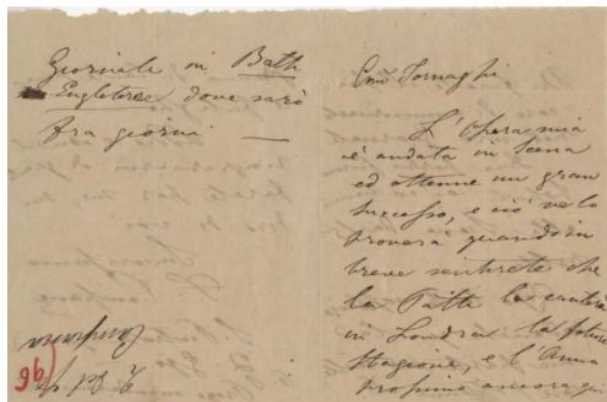 Giornale in Bath
Engleterre dove sarò
fra giorni —
Campana
96
Tornaghi
L'Opera mia
è andata in Scena
ed ottenne un gran
successo, e ciò ve lo
proverà quando in
breve sentirete che
la Patti la canterà
in Londra la futura
Stagione, e l'Anno
prossimo ancora qui